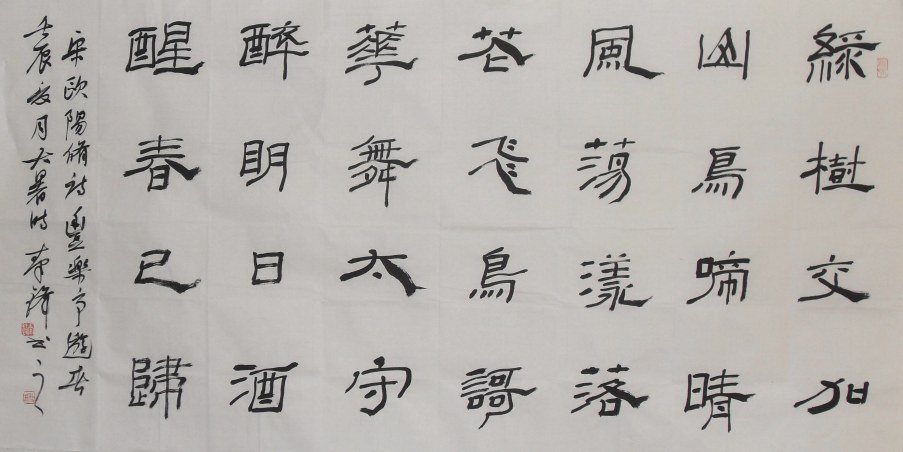 綠樹交加
山鳥啼晴
風蕩漾落
花飛鳥謌
華舞太守
醉明日酒
醒春已歸
宋歐陽脩詩豐樂亭遊春
壬辰夏月大暑時